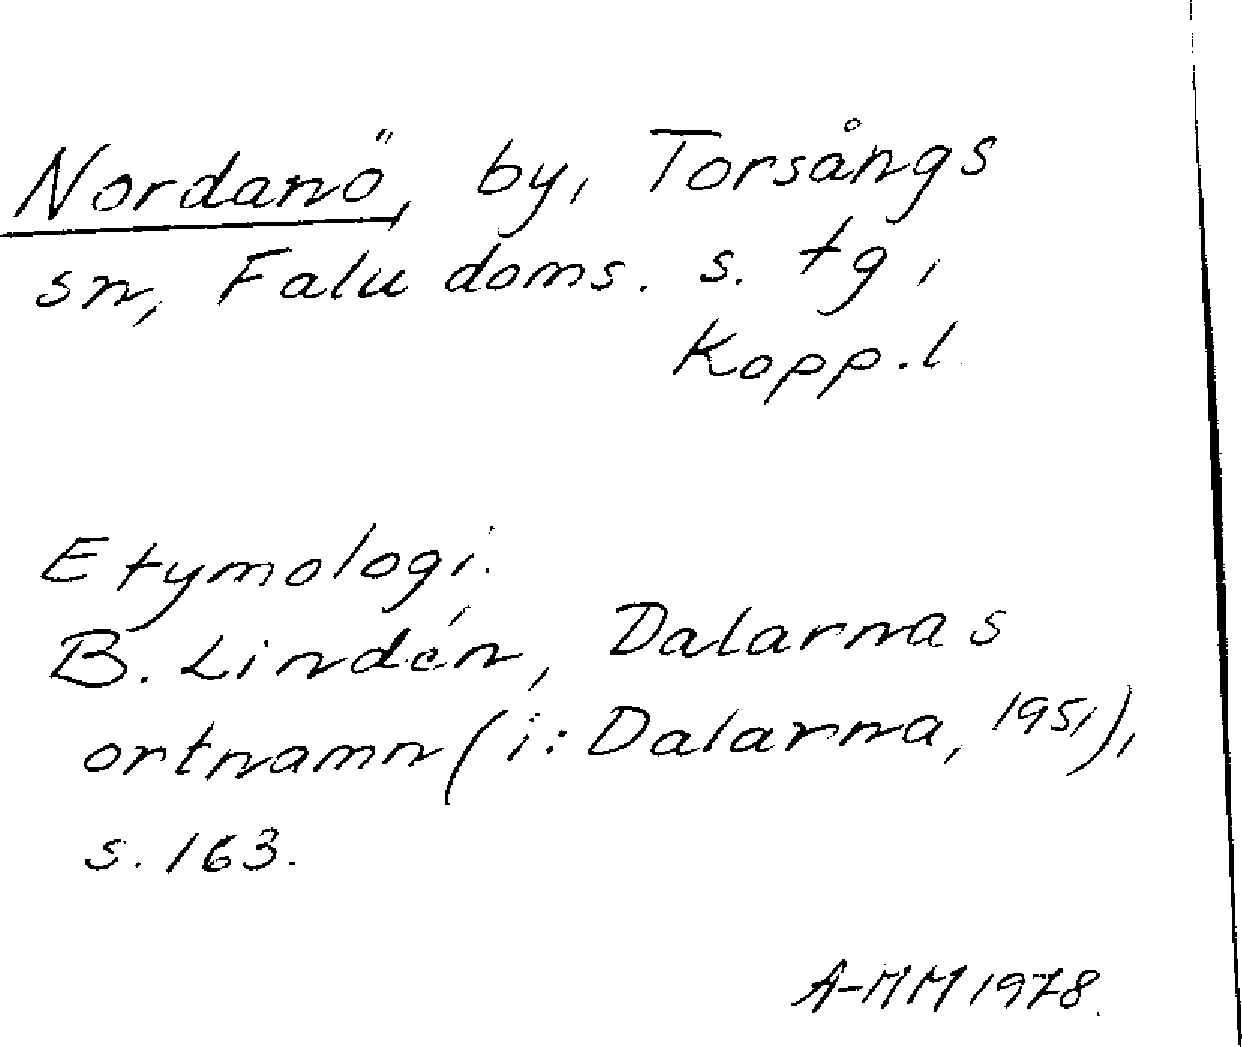 Nordanö, by, Torsångs
sn, Falu doms. s. tg,
Kopp.l.
Etymologi.
B. Lindén, Dalarnas
ortnamn (i: Dalarna, 1951),
s. 163.
A-MM 1978.